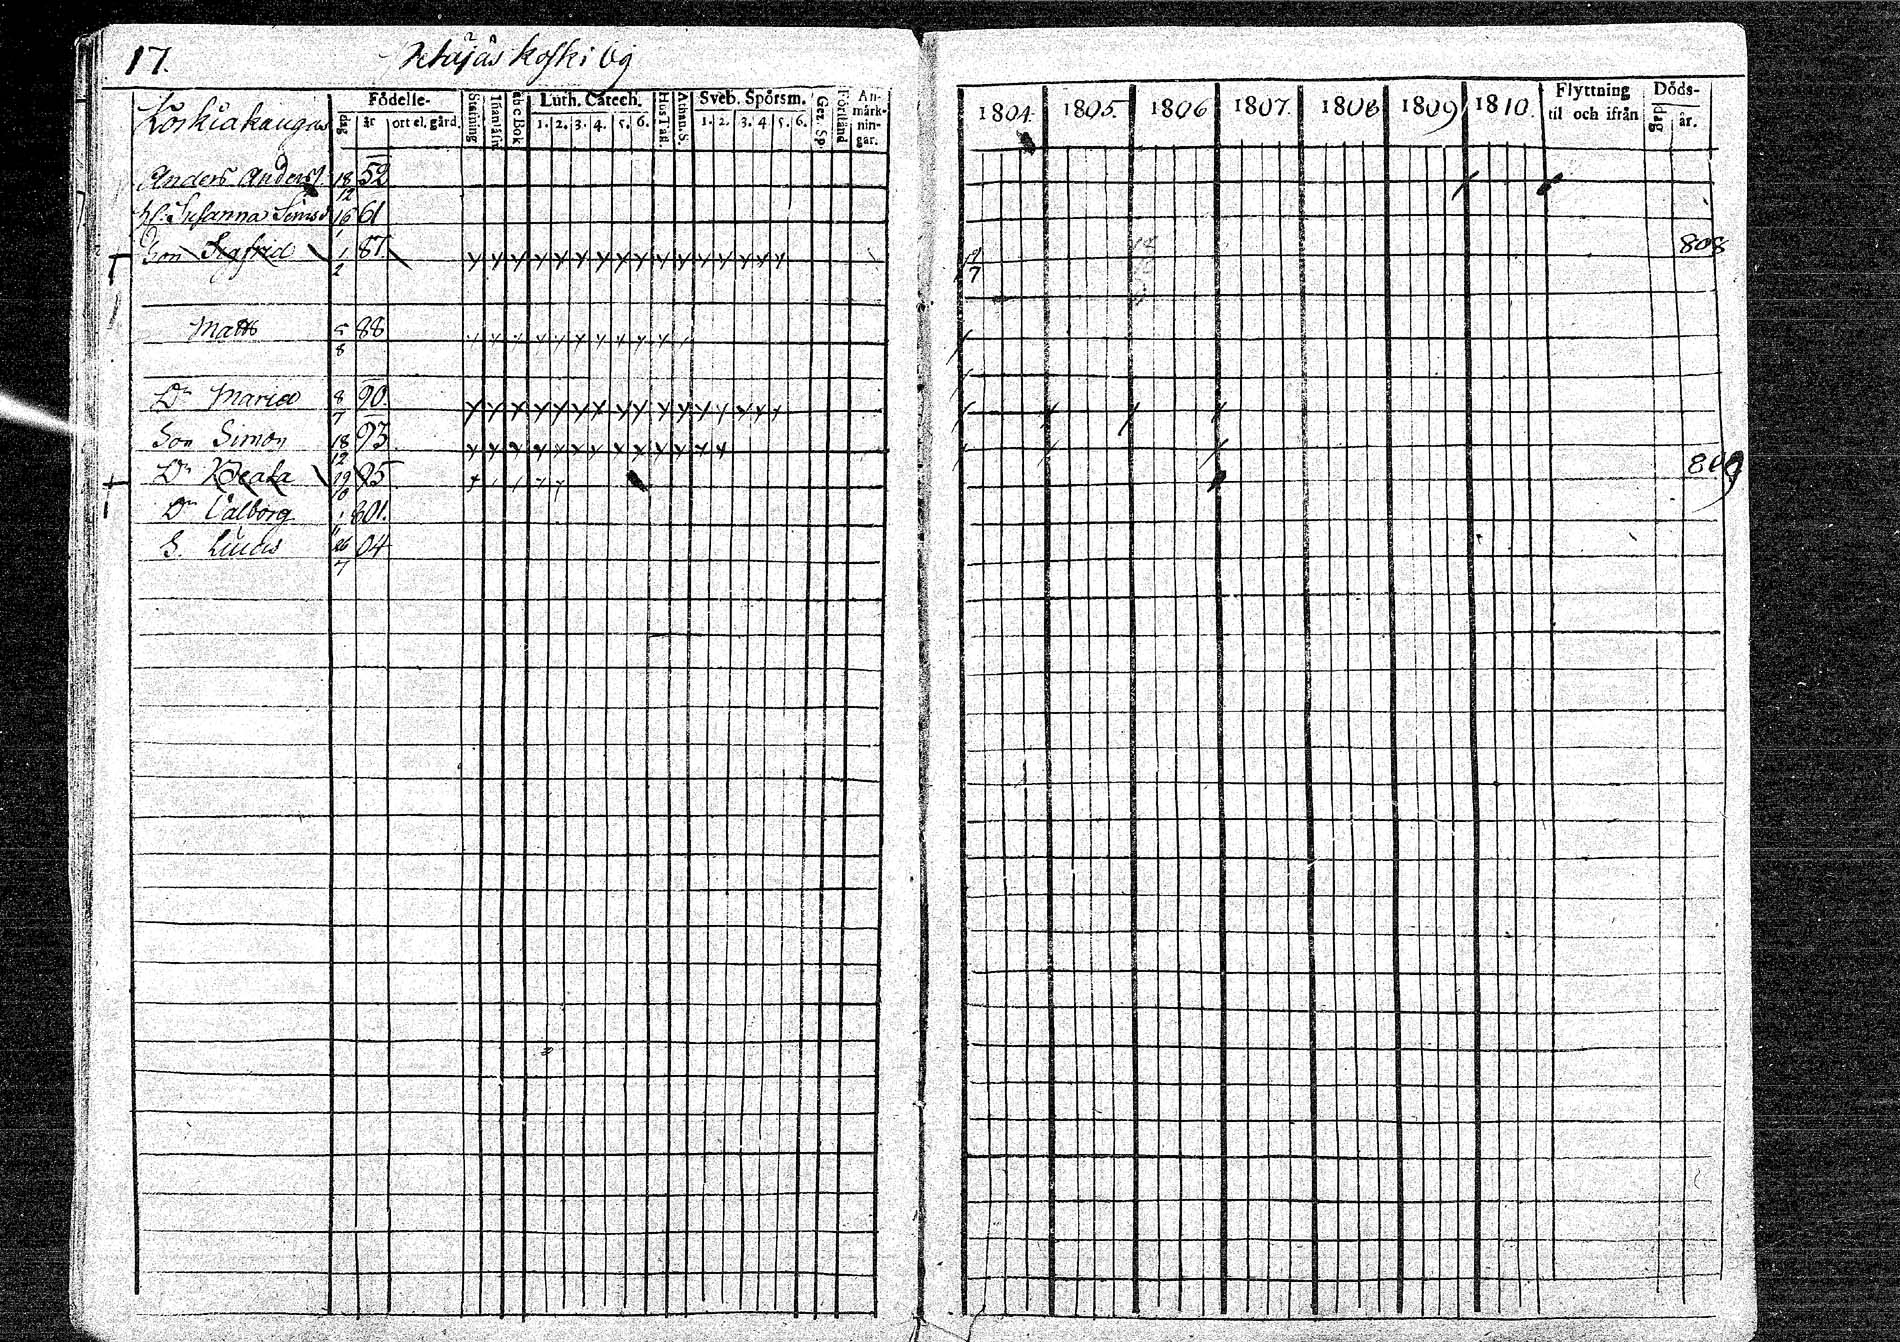 17. Petäjäskoski by
Födelse-
dag år ort el. gård.
Luth. Catech.
1. 2. 3. 4. 5. 6.
Hus Tafl.
Sveb. Spörsm.
1. 2. 3. 4 5. 6.
An-
märk-
nin-
gar.
1804. 1805. 1806 1807. 1808 1809 1810.
Flyttning
til och ifrån
Döds-
dag år.
Koskiakangas
Anders Anders 18 52
12
h. Susanna Simsd 16 61
1
Son Sigfrid 1 87. 808
2 7
Matts 5 88
8
Dr Maria 8 90.
7
Son Simon 18 93
12
Dr Beata 19 95 809
10
Dr Valborg 1 801.
11
S. Lucas 26 04
7